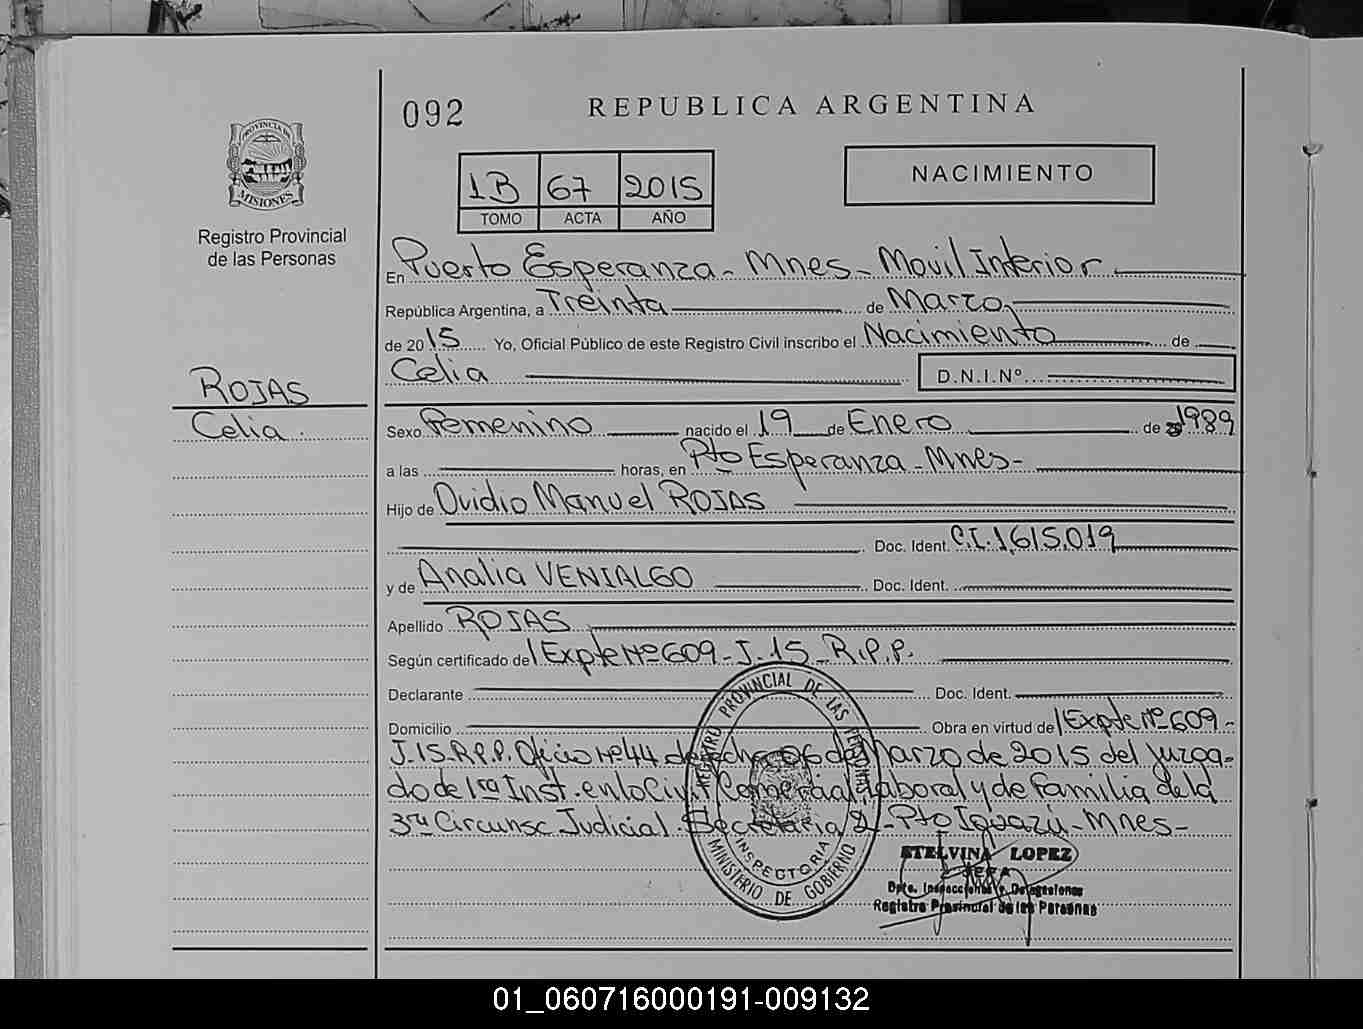 092
REPUBLICA ARGENTINA
PROVINCIA DE
MISIONES
Registro Provincial
de las Personas
1B 67 2015
TOMO ACTA AÑO
NACIMIENTO
En Puerto Esperanza - Mnes - Movil Interior
República Argentina, a Treinta de Marzo
de 2015 Yo, Oficial Público de este Registro Civil inscribo el Nacimiento de
Celia D.N.I.Nº
ROJAS
Celia
Sexo Femenino nacido el 19 de Enero de 1989
a las horas, en Pto Esperanza - Mnes -
Hijo de Ovidio Manuel ROJAS
Doc. Ident. C.I. 1.615.019
y de Analia VENIALGO Doc. Ident.
Apellido ROJAS
Según certificado de Expte Nº 609 - J - 15 - R.P.P.
Declarante Doc. Ident.
Domicilio Obra en virtud de Expte Nº 609 -
J-15-R.P.P. Oficio Nº 44 de fecha 06 de Marzo de 2015 del Juzga-
do de 1ra Inst. en lo Civ. Comercial Laboral y de Familia de la
3ra Circunsc Judicial. Secretaria 2 - Pto Iguazú - Mnes -
REGISTRO PROVINCIAL DE LAS PERSONAS
INSPECTORIA
MINISTERIO DE GOBIERNO
ETELVINA LOPEZ
JEFA
Dpto. Inspecciones y Delegaciones
Registro Provincial de las Personas
01_060716000191-009132